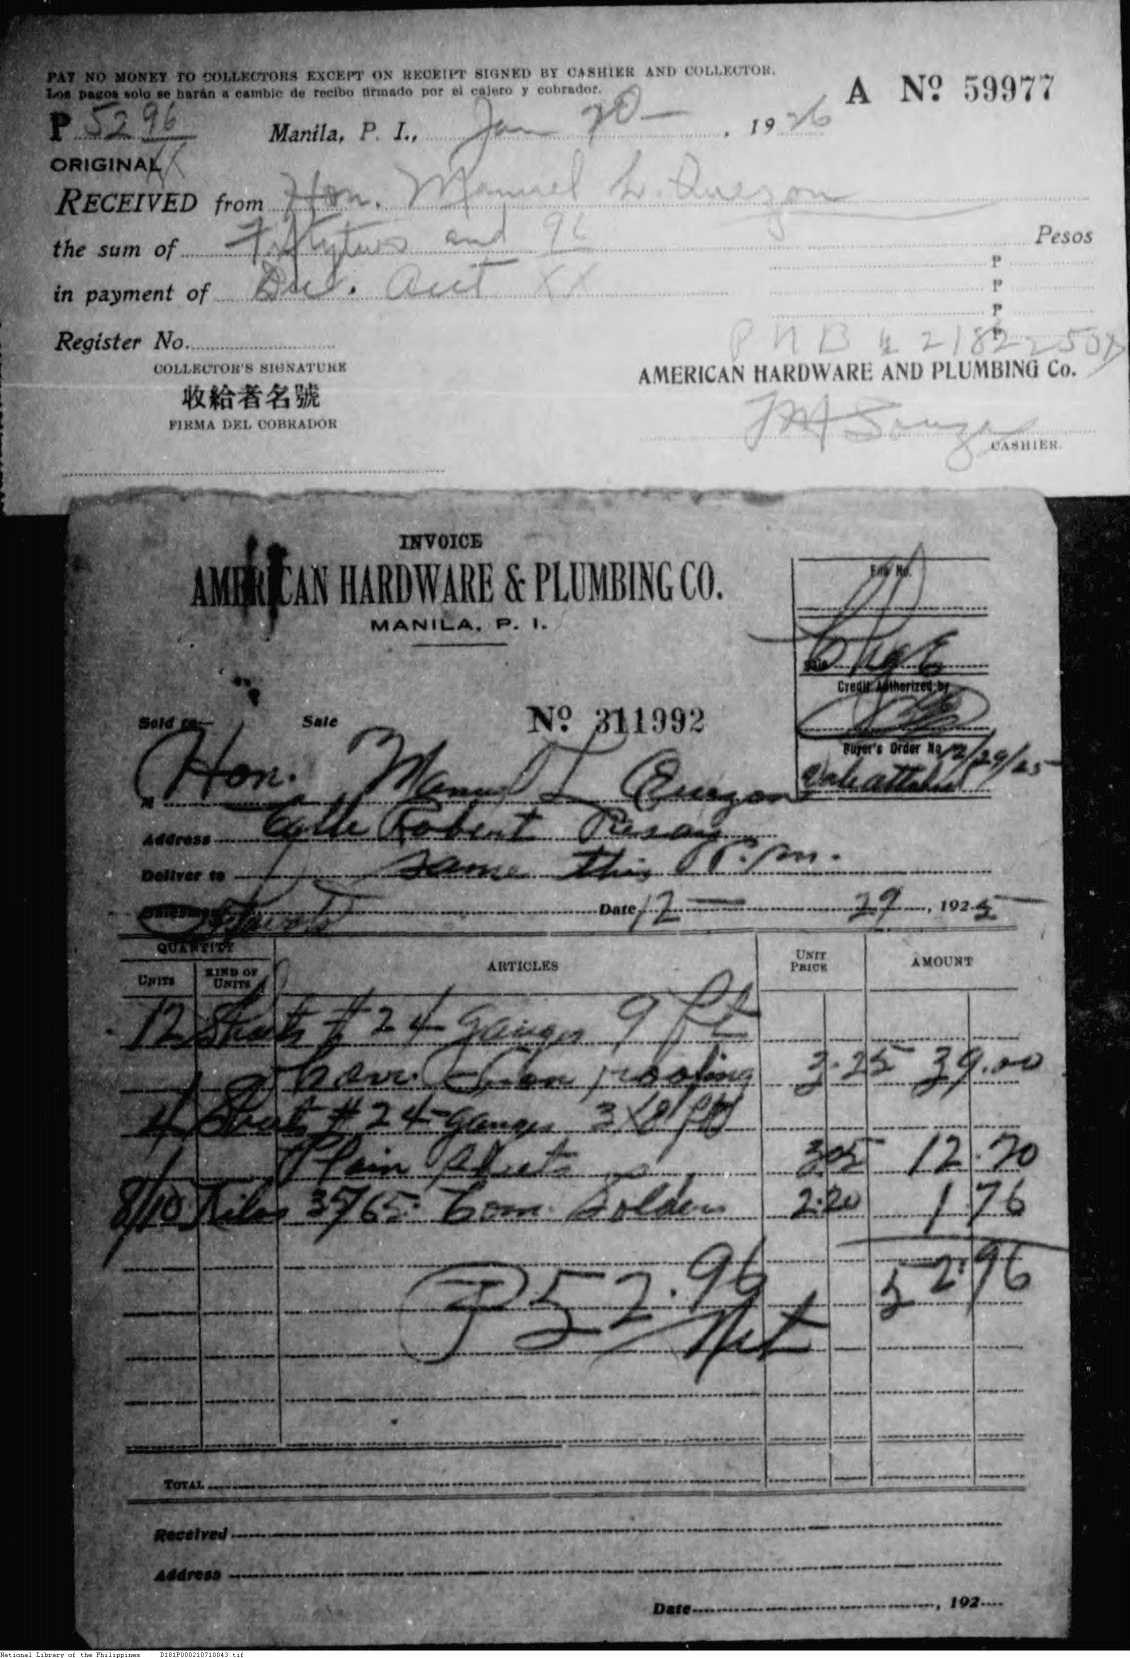 PAY NO MONEY TO COLLECTORS EXCEPT ON RECEIPT SIGNED BY CASHIER AND COLLECTOR.
Los pagos solo se harán a cambic de recibo firmado por el cajero y cobrador.
A Nº 59977
P 52 96 Manila, P. I., Jan 20 — , 1926
ORIGINAL XX
RECEIVED from Hon. Manuel L. Quezon
the sum of Fiftytwo and 96 Pesos
in payment of Due. Acct XX P
P
P
Register No. P N B # 2182250B P
COLLECTOR'S SIGNATURE
AMERICAN HARDWARE AND PLUMBING Co.
收給者名號
FIRMA DEL COBRADOR
CASHIER.
INVOICE
AMERICAN HARDWARE & PLUMBING CO.
MANILA, P. I.
File No.
Sale
Credit Authorized by
Sold to— Sale Nº 311992
Buyer's Order No. 12/29/25
Hon. Manuel L Quezon
Address Calle Robert Pasay
Deliver to same this P.m.
Salesman Date 12 — 29 , 1925
QUANTITY
UNITS KIND OF UNITS ARTICLES UNIT PRICE AMOUNT
12 Sheets # 24 gauges 9 ft
Corr. Iron roofing 3.25 39.00
4 Sheets # 24 gauges 3 x 8 ft
Plain Sheets 3.05 12.20
8/10 Kilos 35/65 Com. Solder 2.20 1 76
52.96
P52.96
Net
TOTAL
Received
Address
Date , 192
National Library of the Philippines D181P000210710043.tif